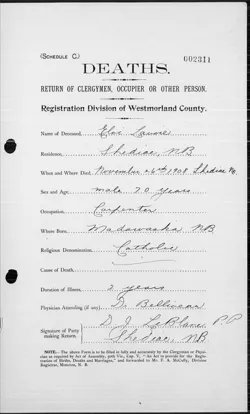 (SCHEDULE C.)
002311
DEATHS.
RETURN OF CLERGYMEN, OCCUPIER OR OTHER PERSON.
Registration Division of Westmorland County.
Name of Deceased,
Residence, Shediac NB
When and Where Died, November 26th 1908 Shediac
Sex and Age, male 70 years
Occupation, Carpenter
Where Born, Madawaska NB
Religious Denomination, Catholic
Cause of Death,
Duration of Illness, 2 years
Physician Attending (if any) Dr Belliveau
Signature of Party making Return. D. J. LeBlanc P.P
Shediac, N.B.
NOTE:—The above Form is to be filled in fully and accurately by the Clergyman or Physician as required by Act of Assembly,